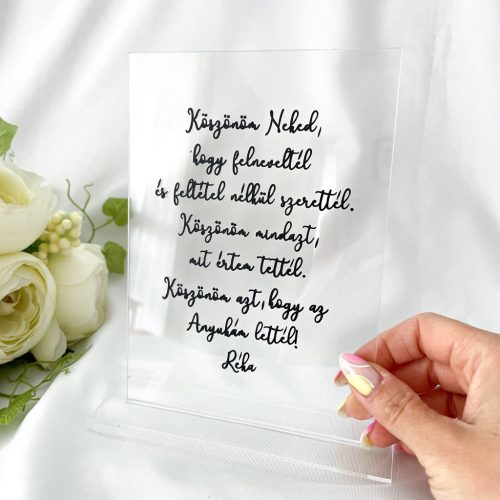 Köszönöm Neked,
hogy felneveltél
és feltétel nélkül szerettél.
Köszönöm mindazt,
mit értem tettél.
Köszönöm azt, hogy az
Anyukám lettél!
Réka